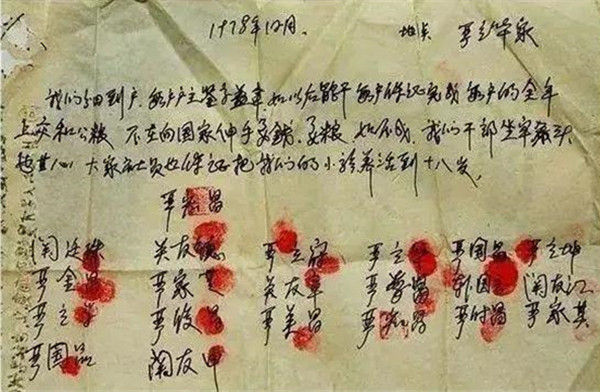 1978年12月. 地点 严立华家
我们分田到户.每户户主签字盖章.如以后能干.每户保证完成每户的全年
上交和公粮.不在向国家伸手要钱.要粮.如不成.我们干部坐牢杀头
也甘心.大家社员也保证把我们的小孩养活到十八岁.
严宏昌
关廷珠 关友德 严立富 严立华 严国昌 严立坤
严金昌 严家芝 关友章 严学昌 韩国云 关友江
严立学 严俊昌 严美昌 严宏昌 严付昌 严家其
严国品 关友申